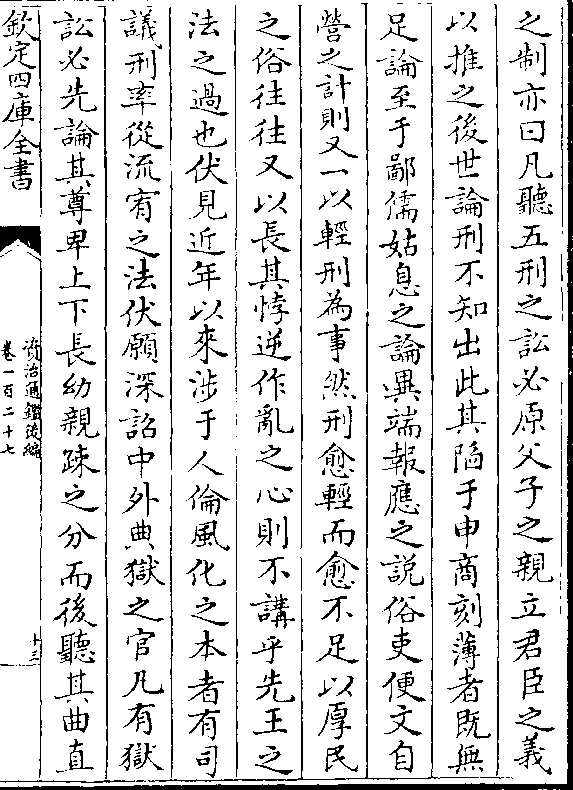 之制亦曰凡聽五刑之訟必原父子之親立君臣之義
以推之後世論刑不知出此其陷于申商刻薄者既無
足論至于鄙儒姑息之論異端報應之說俗吏便文自
營之計則又一以輕刑為事然刑愈輕而愈不足以厚民
之俗往往又以長其悖逆作亂之心則不講乎先王之
法之過也伏見近年以來涉于人倫風化之本者有司
議刑率從流宥之法伏願深詔中外典獄之官凡有獄
訟必先論其尊卑上下長幼親疎之分而後聽其曲直
欽定四庫全書
資治通鑑後編
卷一百二十七
十三